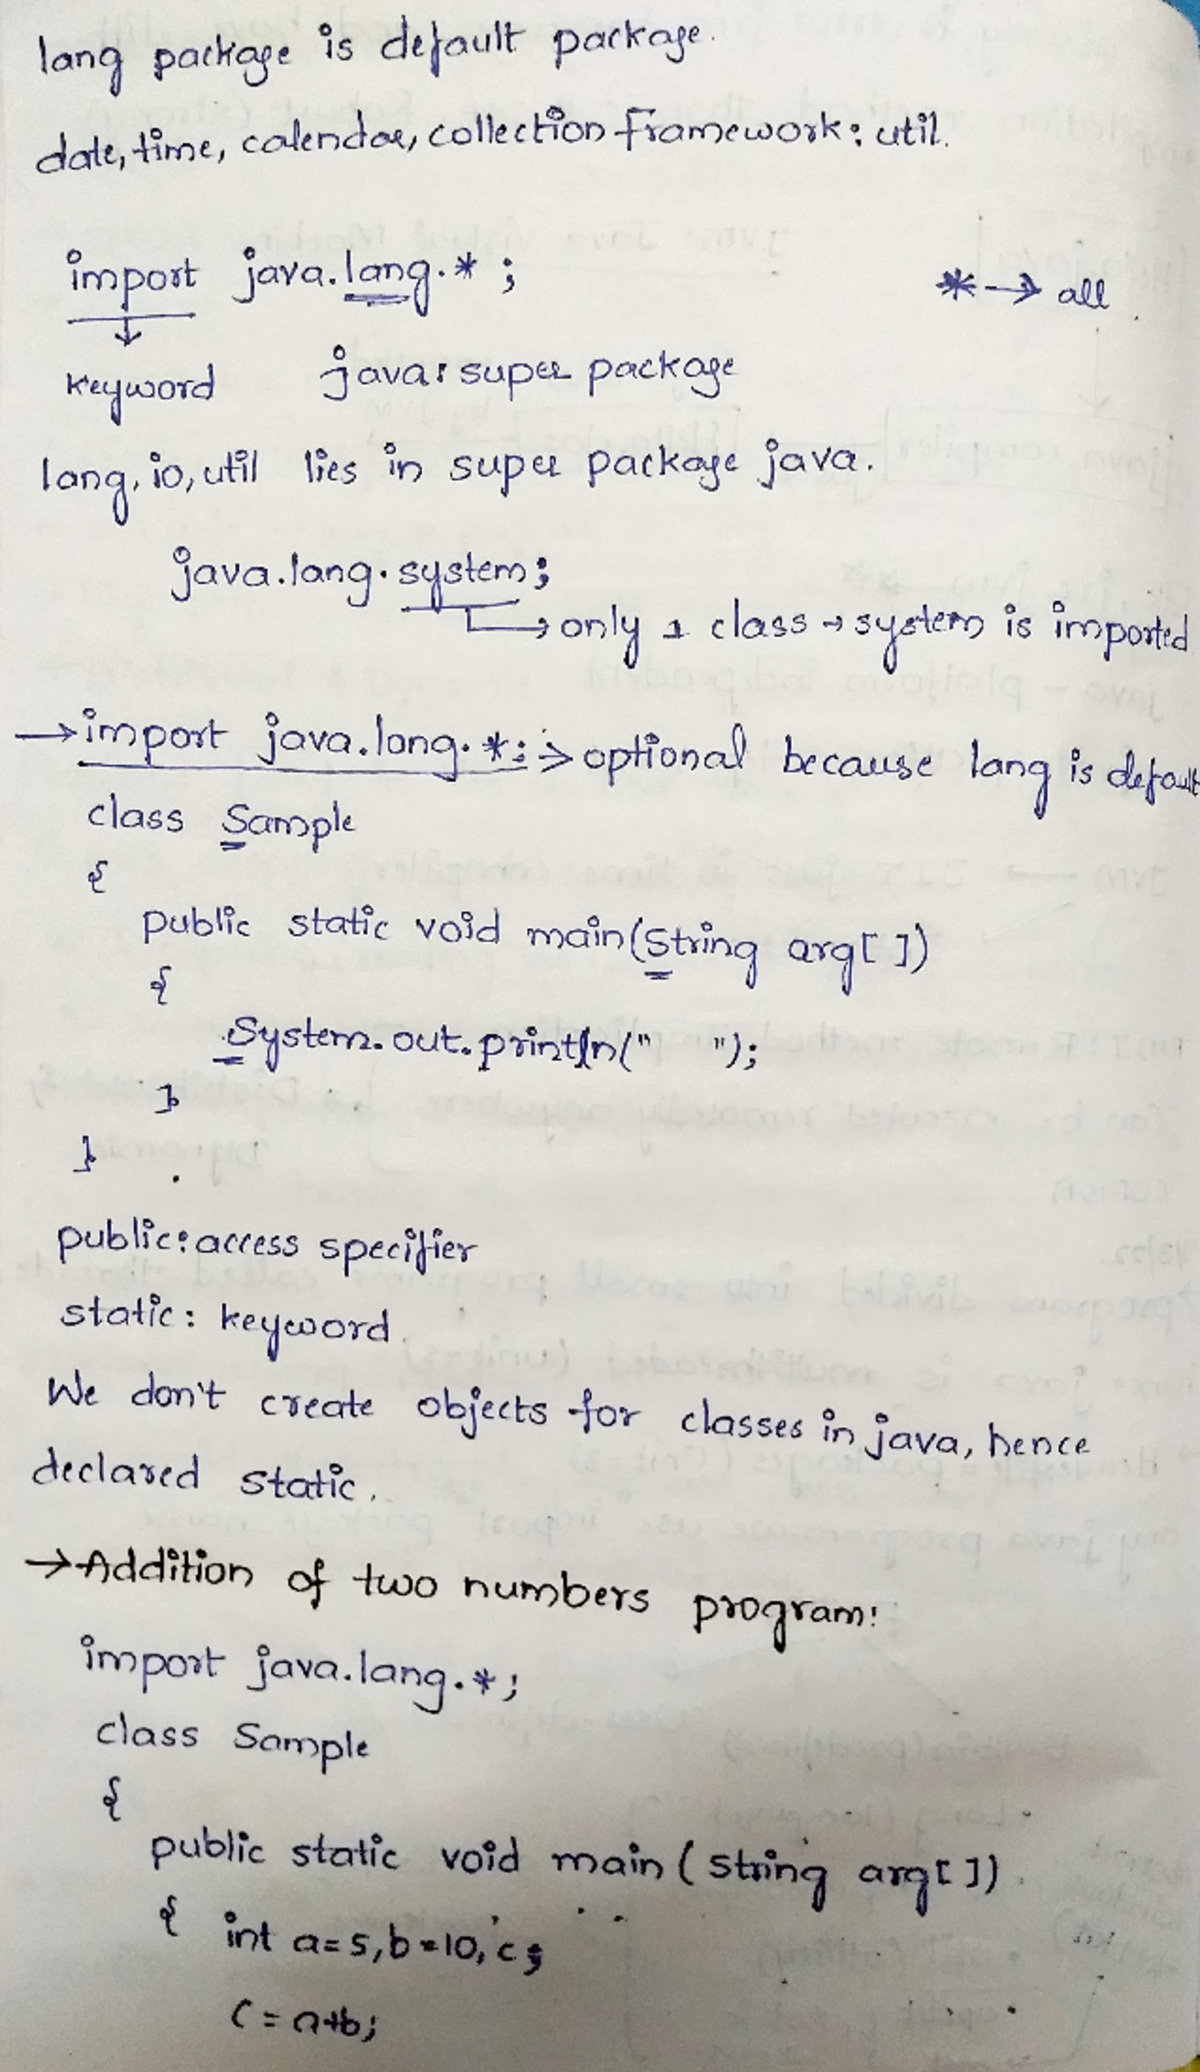 lang package is default package.
date, time, calendar, collection framework: util.
import java.lang.*; * → all
↓
keyword java: super package
lang, io, util lies in super package java.
java.lang.system;
→ only 1 class → system is imported
→ import java.lang.*; → optional because lang is default
class Sample
{
public static void main(String arg[ ])
{
System.out.println(" ");
}
}
public: access specifier
static: keyword
We don't create objects for classes in java, hence
declared static.
→ Addition of two numbers program:
import java.lang.*;
class Sample
{
public static void main(String arg[ ])
{ int a=5, b=10, c;
c = a+b;